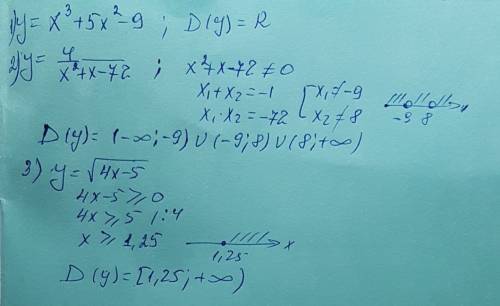 1) y = x³ + 5x² - 9 ; D(y) = R
2) y = 4/(x² + x - 72) ; x² + x - 72 ≠ 0
x₁ + x₂ = -1 [ x₁ ≠ -9
x₁ · x₂ = -72 [ x₂ ≠ 8
-9 8 x
D(y) = (-∞; -9) ∪ (-9; 8) ∪ (8; +∞)
3) y = √(4x-5)
4x - 5 ≥ 0
4x ≥ 5 | : 4
x ≥ 1,25
1,25 x
D(y) = [1,25; +∞)